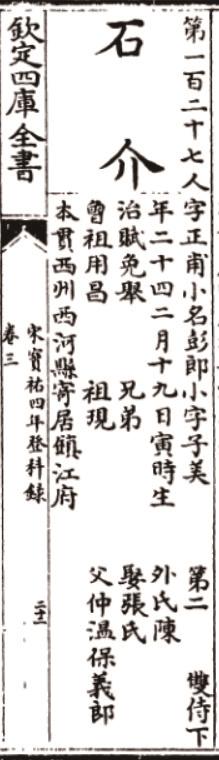 第一百二十七人
石介
字正甫小名彭郎小字子美 第二 雙侍下
年二十四二月十九日寅時生 外氏陳
治賦免舉 兄弟 娶張氏
曾祖用昌 祖現 父仲温保義郎
本貫西州西河縣寄居鎮江府
欽定四庫全書
宋寳祐四年登科錄
卷三
二十二